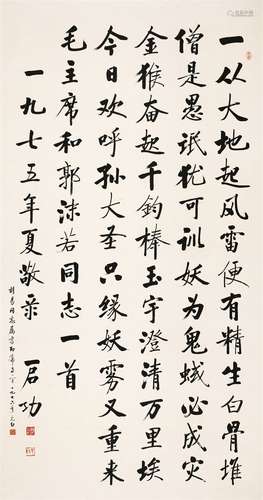 一从大地起风雷便有精生白骨堆
僧是愚氓犹可训妖为鬼蜮必成灾
金猴奋起千鈞棒玉宇澄清万里埃
今日欢呼孙大圣只缘妖雾又重来
毛主席和郭沫若同志一首
一九七五年夏敬录 启功